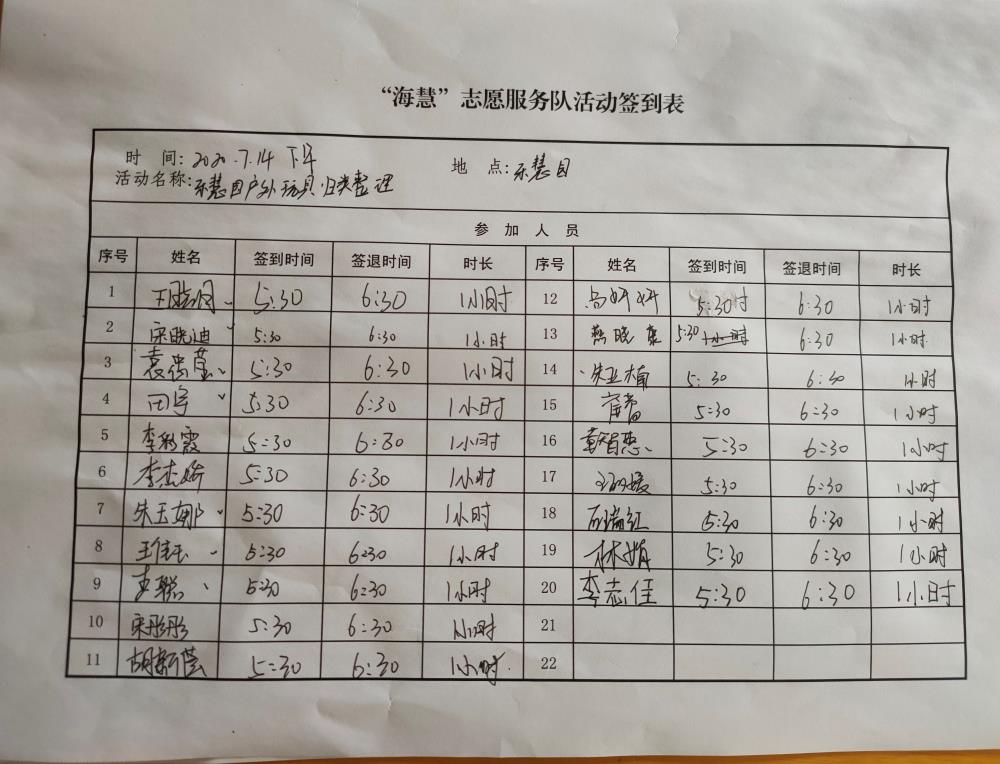 “海慧”志愿服务队活动签到表
时 间：2020.7.14 下午 地 点：乐慧园
活动名称：乐慧园户外玩具归类整理
参 加 人 员
序号 姓名 签到时间 签退时间 时长 序号 姓名 签到时间 签退时间 时长
1 5:30 6:30 1小时 12 5:30 6:30 1小时
2 宋晓迪 5:30 6:30 1小时 13 燕晓 5:30 6:30 1小时
3 袁 5:30 6:30 1小时 14 朱亚楠 5:30 6:30 1小时
4 田宇 5:30 6:30 1小时 15 5:30 6:30 1小时
5 李彩霞 5:30 6:30 1小时 16 5:30 6:30 1小时
6 李杰娇 5:30 6:30 1小时 17 5:30 6:30 1小时
7 朱玉娜 5:30 6:30 1小时 18 石瑞红 5:30 6:30 1小时
8 王佳玉 5:30 6:30 1小时 19 林娟 5:30 6:30 1小时
9 5:30 6:30 1小时 20 李志佳 5:30 6:30 1小时
10 宋彤彤 5:30 6:30 1小时 21
11 胡新 5:30 6:30 1小时 22